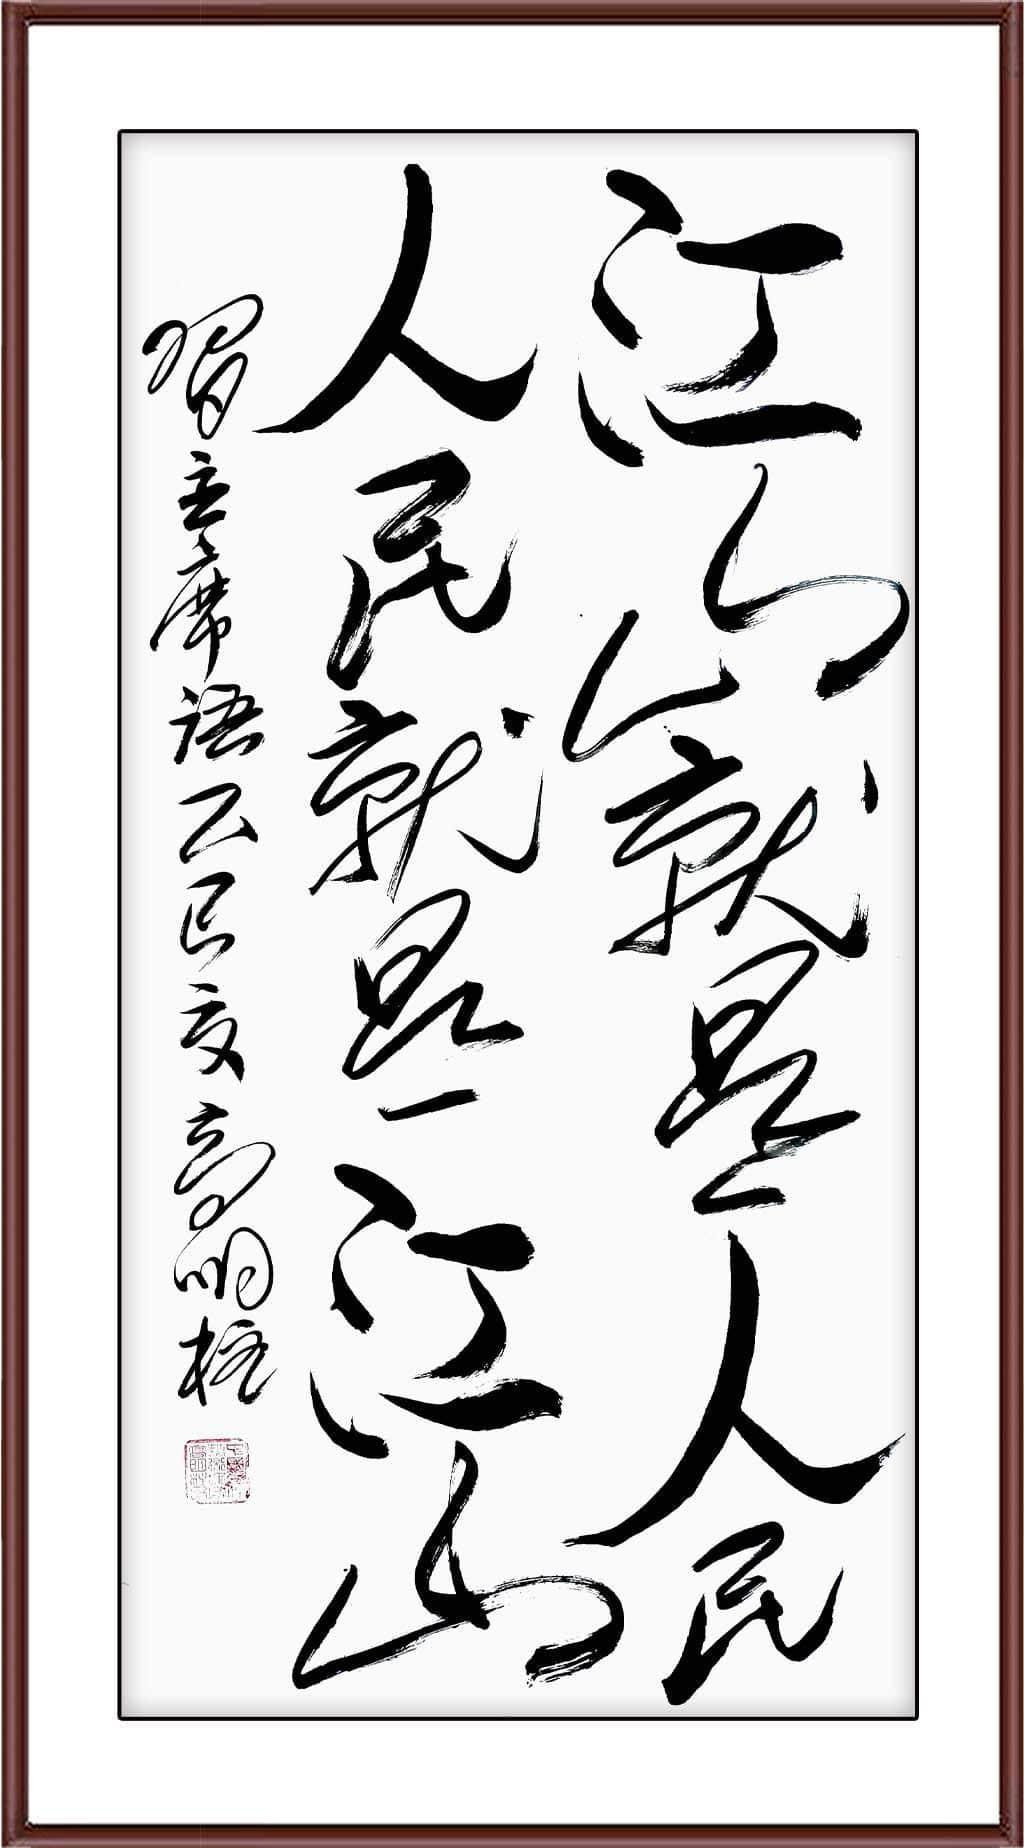 江山就是人民
人民就是江山
習主席語乙巳夏高明柱